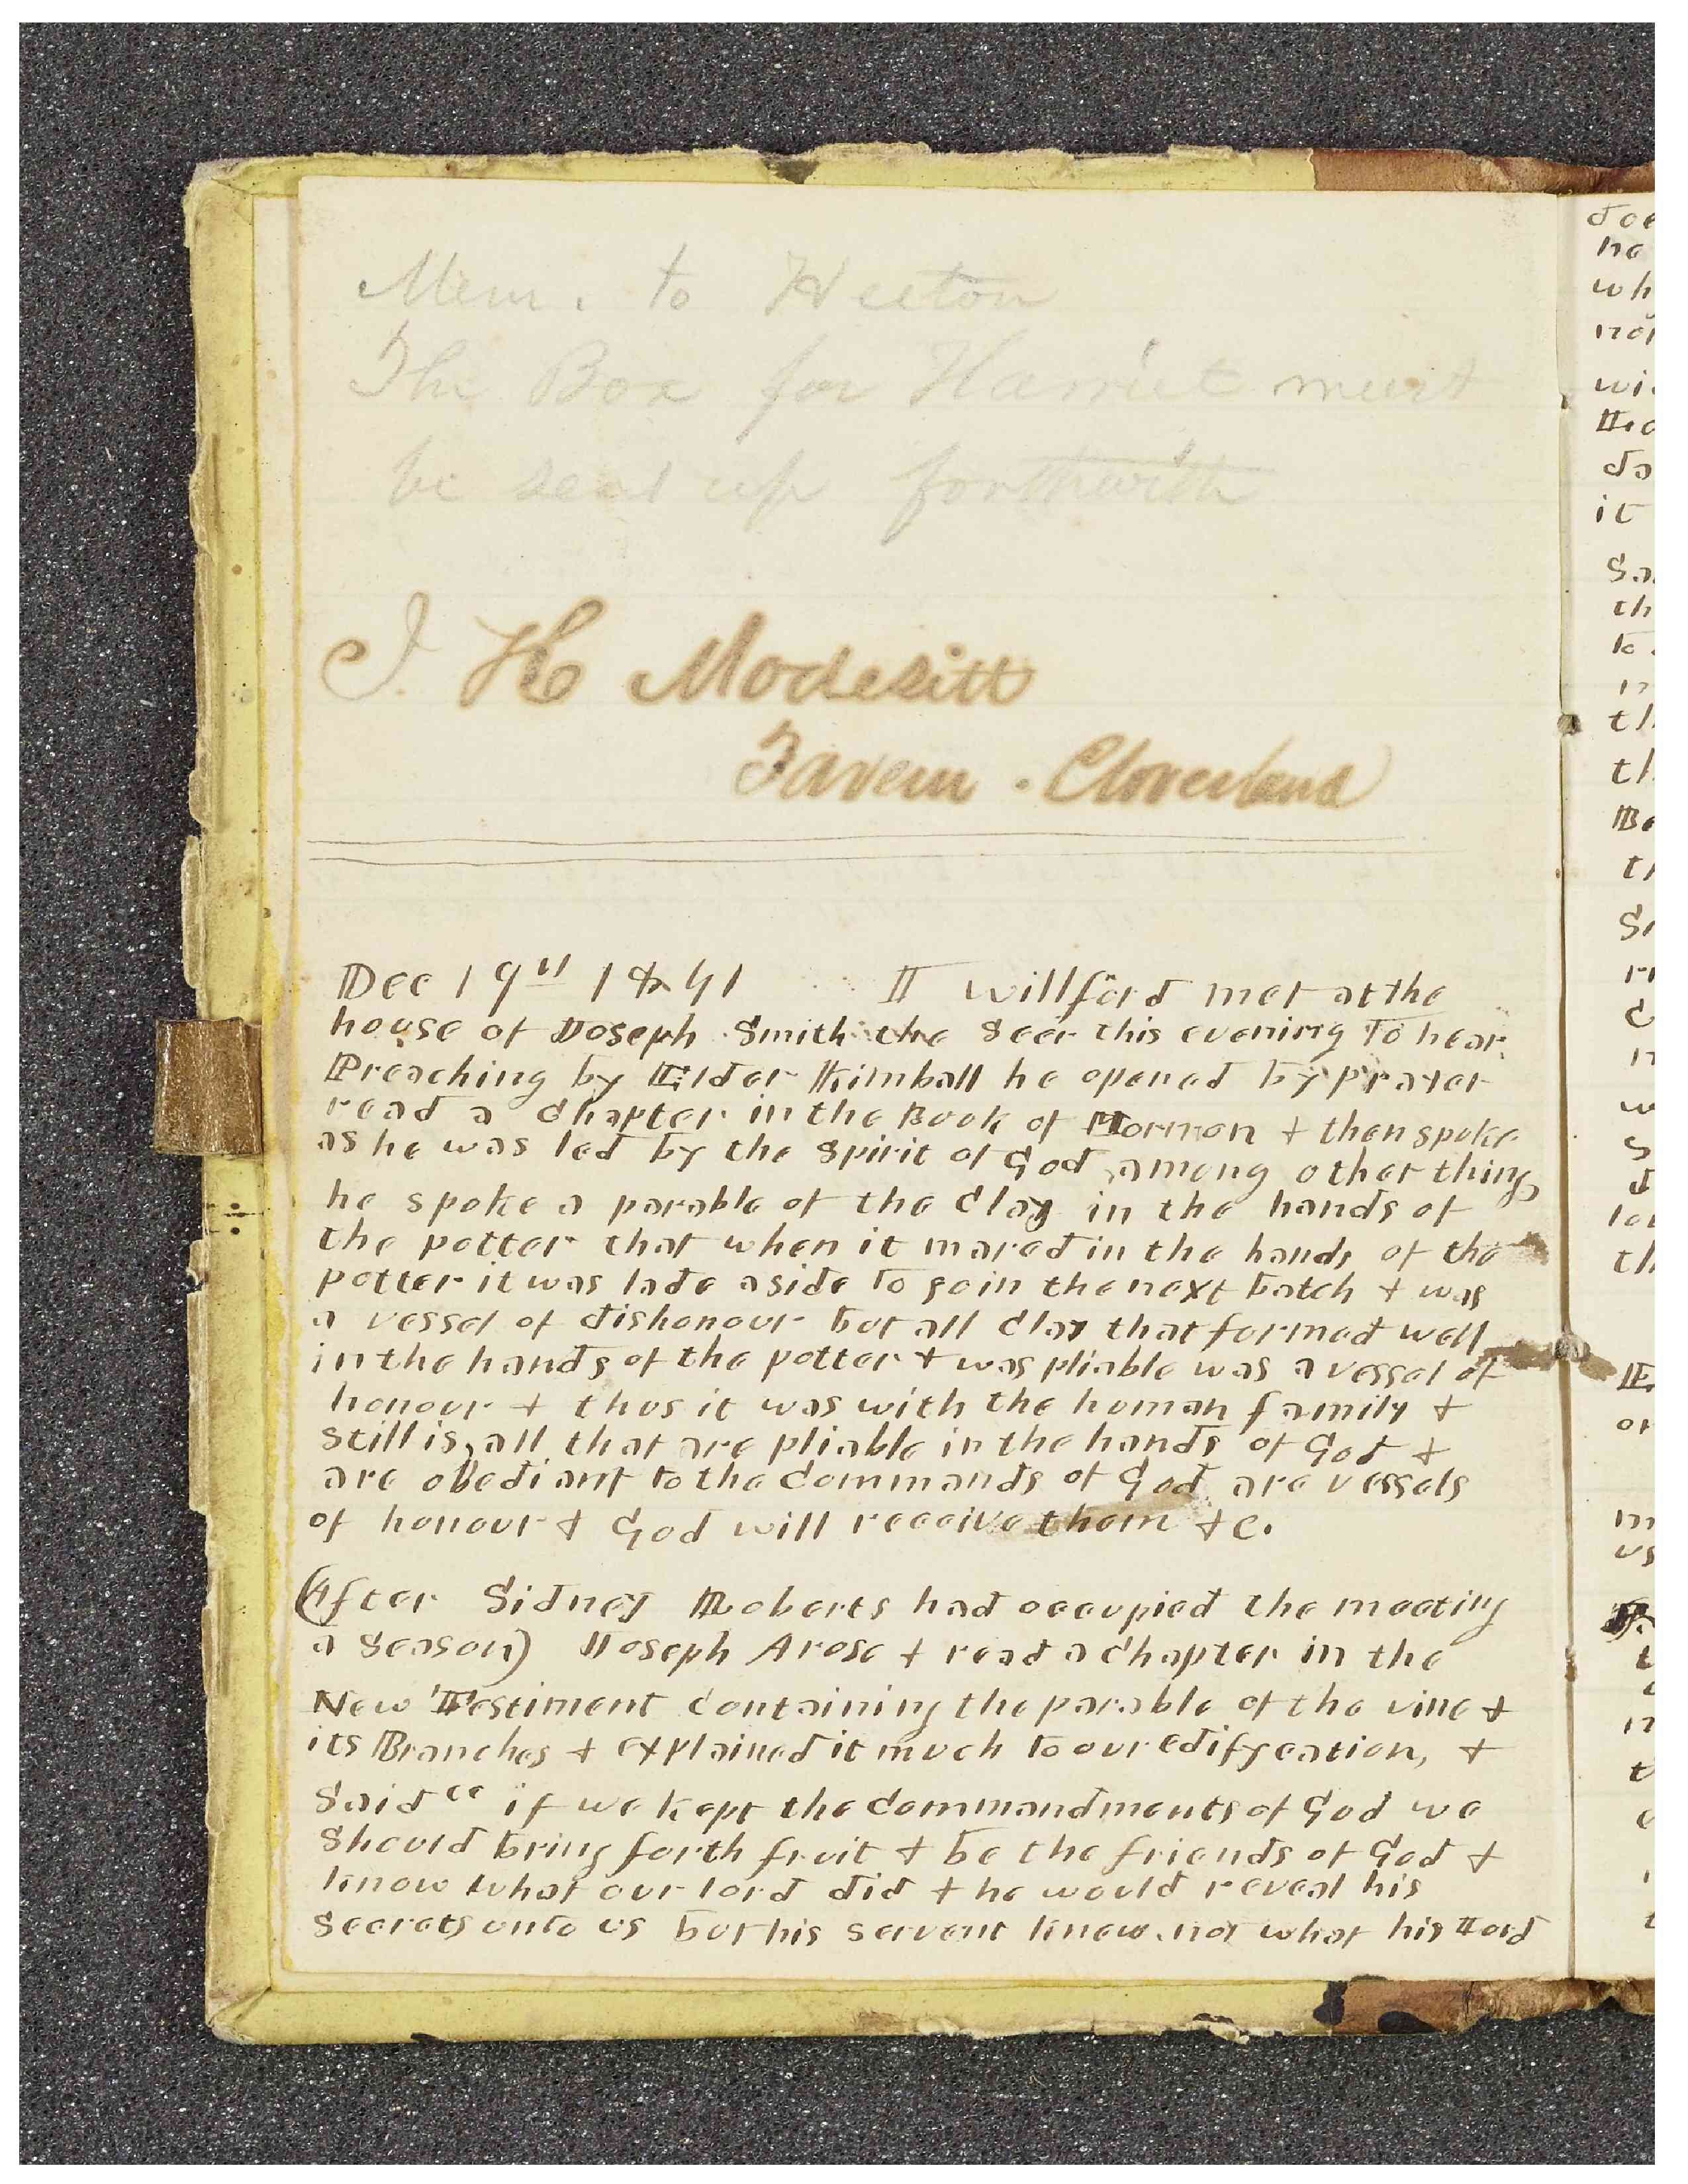 Mem. to Heeton
The Box for Harriet must
be sent up forthwith
J. H Modesitt
Tavern . Cloverland
Dec 19th 1841 I willford met at the
house of Joseph Smith the Seer this evening to hear
Preaching by Elder Kimball he opened by prayer
read a chapter in the Book of Mormon + then spoke
as he was led by the spirit of God among other things
he spoke a parable of the clay in the hands of
the potter that when it mared in the hands of the
potter it was lade aside to go in the next batch + was
a vessel of dishonour but all clay that formed well
in the hands of the potter + was pliable was a vessel of
honour + thus it was with the human family +
still is, all that are pliable in the hands of God +
are obediant to the commands of God are vessels
of honour + God will receive them +c.
(After Sidney Roberts had occupied the meeting
a season) Joseph Arose + read a chapter in the
New Testiment containing the parable of the vine +
its Branches + explained it much to our edifycation, +
Said "if we kept the commandments of God we
should bring forth fruit + be the friends of God +
know what our lord did + he would reveal his
secrets unto us but his servent knew not what his Lord
doe
no
wh
nor
wi
da
it
Sa
th
to
th
th
Be
th
th
or
us